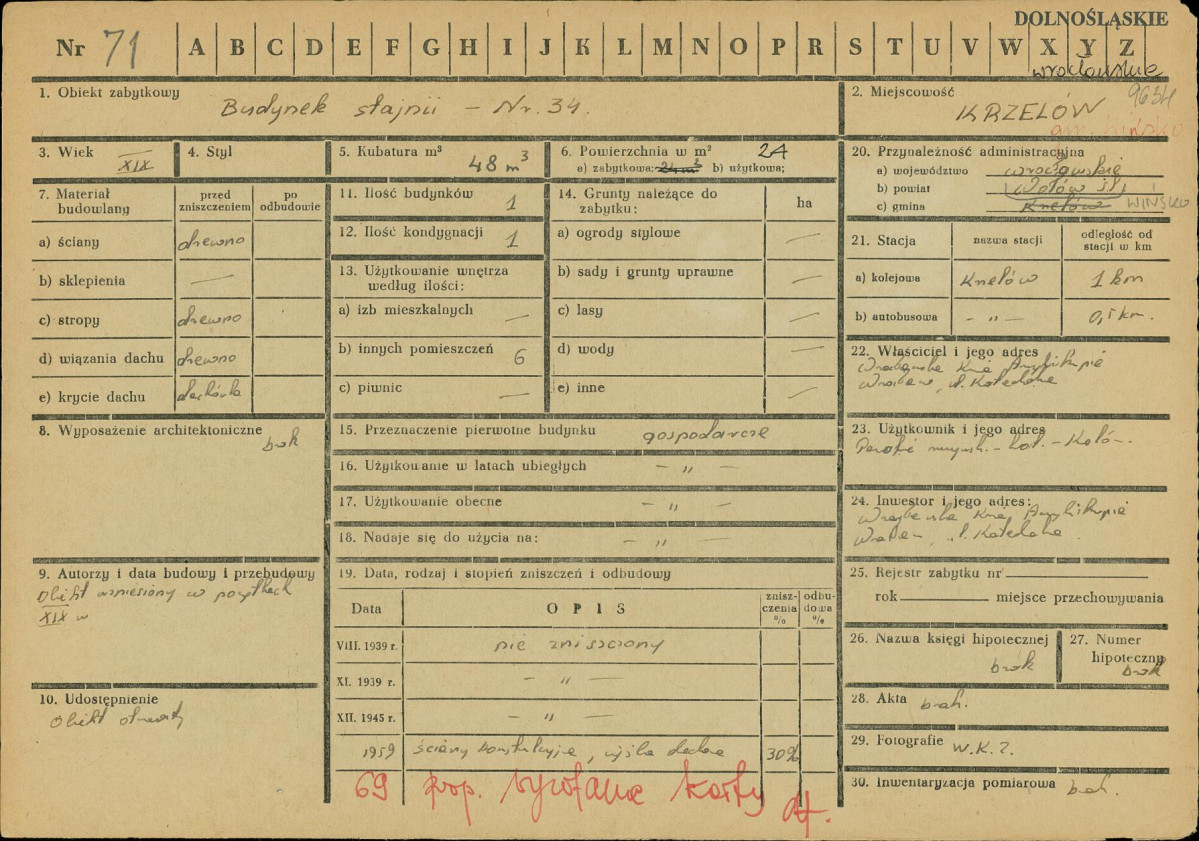 DOLNOŚLĄSKIE
Nr 71 A B C D E F G H I J K L M N O P R S T U V W X Y Z
wrocławskie
1. Obiekt zabytkowy
Budynek stajnii – Nr. 34.
2. Miejscowość 9634
KRZELÓW
gm. Wińsko
3. Wiek XIX
4. Styl
5. Kubatura m³ 48 m³
6. Powierzchnia w m² 24
a) zabytkowa: 24 m² b) użytkowa;
20. Przynależność administracyjna
a) województwo wrocławskie
b) powiat Wołów śl.
c) gmina Krzelów WIŃSKO
7. Materiał budowlany
przed zniszczeniem
po odbudowie
a) ściany drewno
b) sklepienia —
c) stropy drewno
d) wiązania dachu drewno
e) krycie dachu dachówka
11. Ilość budynków 1
12. Ilość kondygnacji 1
13. Użytkowanie wnętrza
według ilości:
a) izb mieszkalnych —
b) innych pomieszczeń 6
c) piwnic —
14. Grunty należące do
zabytku:
ha
a) ogrody stylowe —
b) sady i grunty uprawne —
c) lasy —
d) wody —
e) inne —
21. Stacja
nazwa stacji
odległość od
stacji w km
a) kolejowa Krzelów 1 km
b) autobusowa – „ – 0,5 km.
22. Właściciel i jego adres
Kuria Arcybiskupia
Wrocław, Katedralna
8. Wyposażenie architektoniczne
brak
15. Przeznaczenie pierwotne budynku gospodarcze
16. Użytkowanie w latach ubiegłych – „ –
17. Użytkowanie obecne – „ –
18. Nadaje się do użycia na: – „ –
23. Użytkownik i jego adres
24. Inwestor i jego adres:
Kuria Arcybiskupia
Katedralna
9. Autorzy i data budowy i przebudowy
Obiekt wzniesiony w początkach
XIX w
19. Data, rodzaj i stopień zniszczeń i odbudowy
Data
OPIS
znisz-
czenia
%
odbu-
dowa
%
VIII. 1939 r. nie zniszczony
XI. 1939 r. – „ –
XII. 1945 r. – „ –
1959 ściany konstrukcyjne, dachowa 30%
69 prop. wycofanie karty
25. Rejestr zabytku nr
rok miejsce przechowywania
26. Nazwa księgi hipotecznej
brak
27. Numer
hipoteczny
brak
10. Udostępnienie
Obiekt otwarty
28. Akta brak.
29. Fotografie W.K.Z.
30. Inwentaryzacja pomiarowa brak.